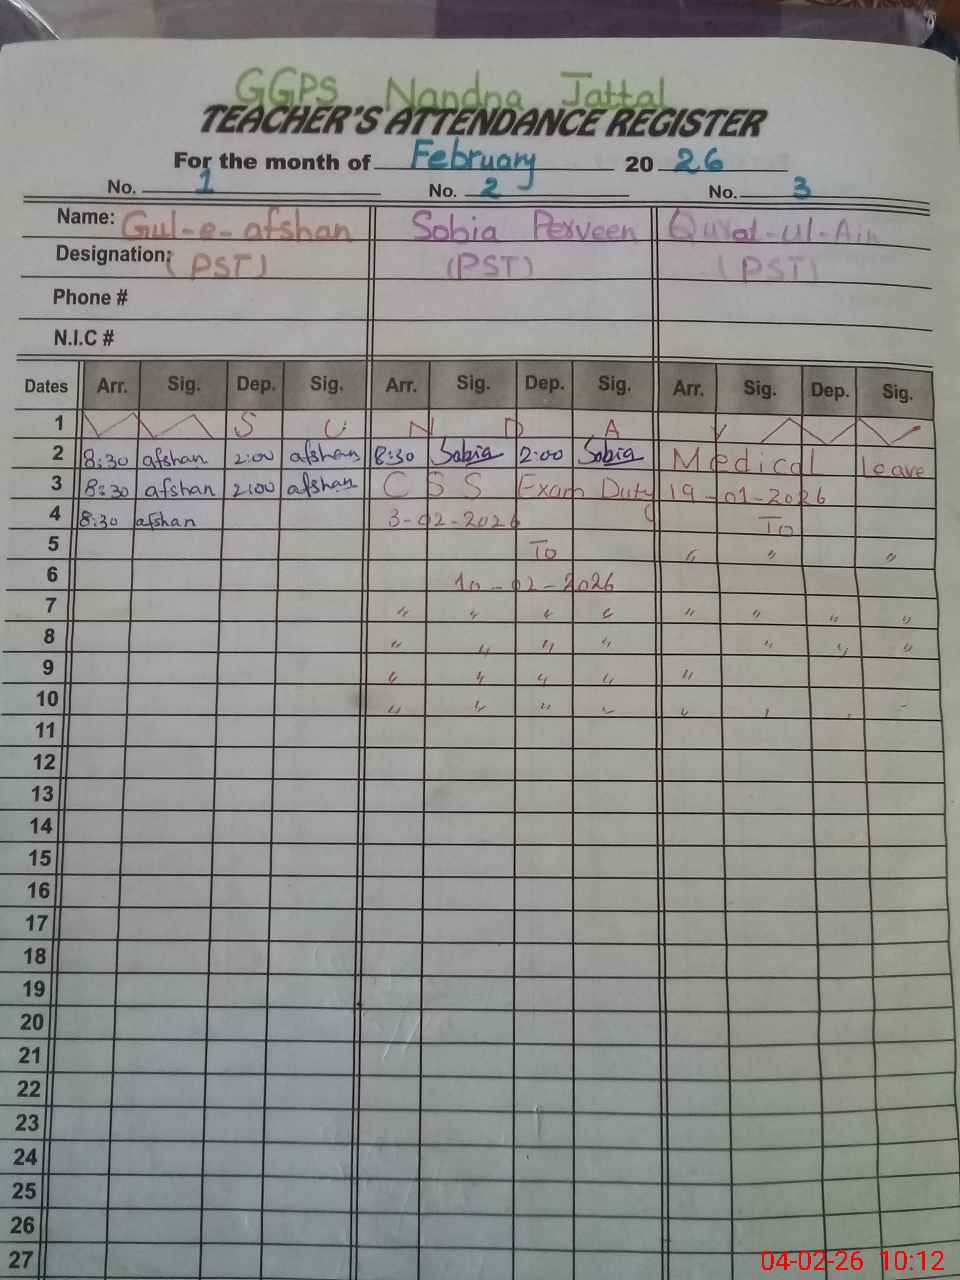 GGPS Nandna Jattal
TEACHER'S ATTENDANCE REGISTER
For the month of February 20 26
No. 1 No. 2 No. 3
Name: Gul-e-afshan Sobia Perveen Qurat-ul-Ain
Designation: (PST) (PST) (PST)
Phone #
N.I.C #
Dates Arr. Sig. Dep. Sig. Arr. Sig. Dep. Sig. Arr. Sig. Dep. Sig.
1 S U N D A Y
2 8:30 afshan 2:00 afshan 8:30 Sobia 2:00 Sobia Medical Leave
3 8:30 afshan 2:00 afshan CSS Exam Duty 19-01-2026
4 8:30 afshan 3-02-2026 To
5 To " " "
6 10-02-2026
7 " " " " " " " "
8 " " " " " " "
9 " " " " "
10 " " " " "
11
12
13
14
15
16
17
18
19
20
21
22
23
24
25
26
27
04-02-26 10:12